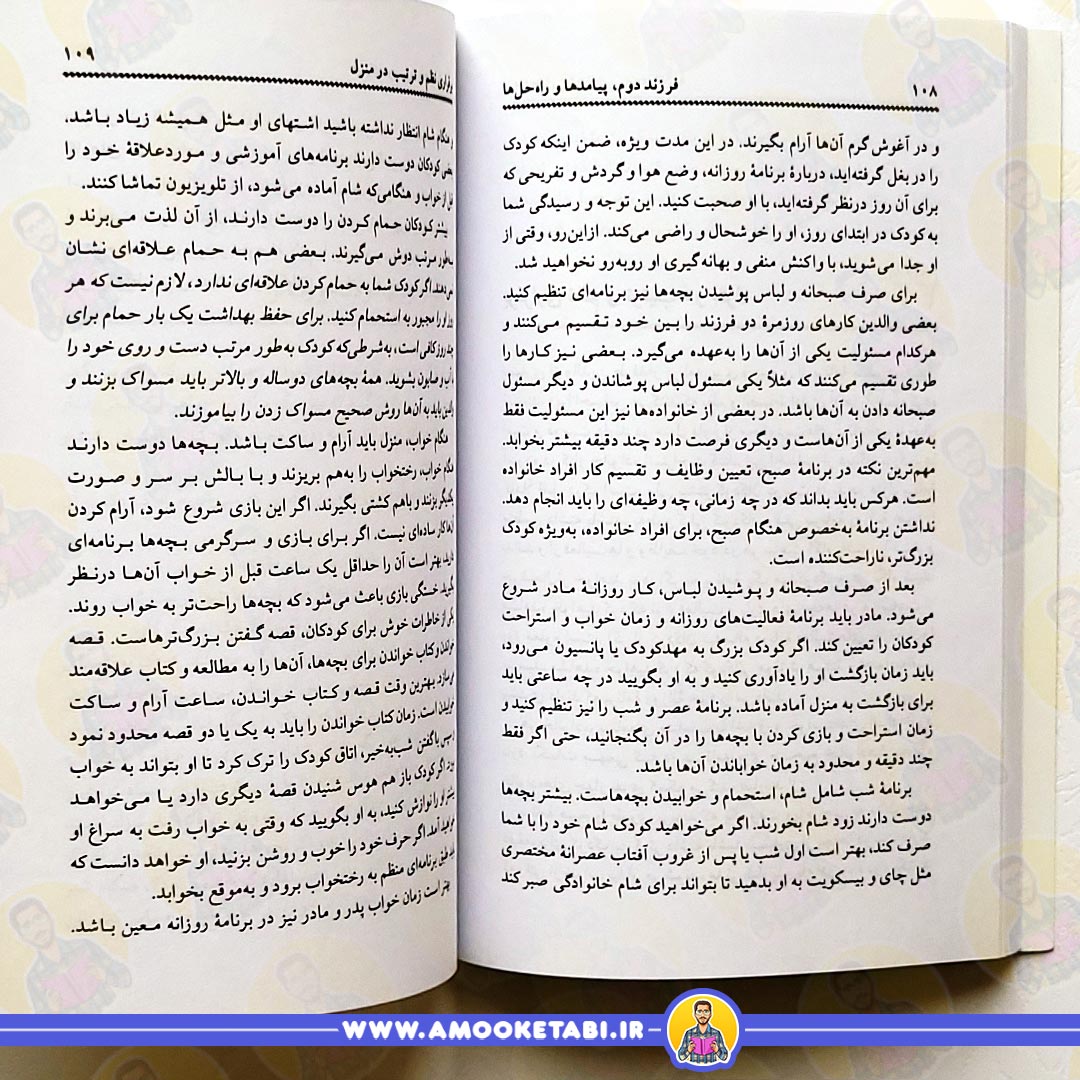 ۱۰۸
فرزند دوم، پیامدها و راه‌حل‌ها
و در آغوش گرم آن‌ها آرام بگیرند. در این مدت ویژه، ضمن اینکه کودک
را در بغل گرفته‌اید، دربارهٔ برنامهٔ روزانه، وضع هوا و گردش و تفریحی که
برای آن روز درنظر گرفته‌اید، با او صحبت کنید. این توجه و رسیدگی شما
به کودک در ابتدای روز، او را خوشحال و راضی می‌کند. ازاین‌رو، وقتی از
او جدا می‌شوید، با واکنش منفی و بهانه‌گیری او روبه‌رو نخواهید شد.
برای صرف صبحانه و لباس پوشیدن بچه‌ها نیز برنامه‌ای تنظیم کنید.
بعضی والدین کارهای روزمرهٔ دو فرزند را بین خود تقسیم می‌کنند و
هرکدام مسئولیت یکی از آن‌ها را به‌عهده می‌گیرد. بعضی نیز کارها را
طوری تقسیم می‌کنند که مثلاً یکی مسئول لباس پوشاندن و دیگر مسئول
صبحانه دادن به آن‌ها باشد. در بعضی از خانواده‌ها نیز این مسئولیت فقط
به‌عهدهٔ یکی از آن‌هاست و دیگری فرصت دارد چند دقیقه بیشتر بخوابد.
مهم‌ترین نکته در برنامهٔ صبح، تعیین وظایف و تقسیم کار افراد خانواده
است. هرکس باید بداند که در چه زمانی، چه وظیفه‌ای را باید انجام دهد.
نداشتن برنامهٔ به‌خصوص هنگام صبح، برای افراد خانواده، به‌ویژه کودک
بزرگ‌تر، ناراحت‌کننده است.
بعد از صرف صبحانه و پوشیدن لباس، کار روزانهٔ مادر شروع
می‌شود. مادر باید برنامهٔ فعالیت‌های روزانه و زمان خواب و استراحت
کودکان را تعیین کند. اگر کودک بزرگ به مهدکودک یا پانسیون می‌رود،
باید زمان بازگشت او را یادآوری کنید و به او بگویید در چه ساعتی باید
برای بازگشت به منزل آماده باشد. برنامهٔ عصر و شب را نیز تنظیم کنید و
زمان استراحت و بازی کردن با بچه‌ها را در آن بگنجانید، حتی اگر فقط
چند دقیقه و محدود به زمان خواباندن آن‌ها باشد.
برنامهٔ شب شامل شام، استحمام و خوابیدن بچه‌هاست. بیشتر بچه‌ها
دوست دارند زود شام بخورند. اگر می‌خواهید کودک شام خود را با شما
صرف کند، بهتر است اول شب یا پس از غروب آفتاب عصرانهٔ مختصری
مثل چای و بیسکویت به او بدهید تا بتواند برای شام خانوادگی صبر کند
نظم و ترتیب در منزل
۱۰۹
هنگام شام انتظار نداشته باشید اشتهای او مثل همیشه زیاد باشد.
کودکان دوست دارند برنامه‌های آموزشی و موردعلاقهٔ خود را
از خواب و هنگامی‌که شام آماده می‌شود، از تلویزیون تماشا کنند.
بیشتر کودکان حمام کردن را دوست دارند، از آن لذت می‌برند و
مرتب دوش می‌گیرند. بعضی هم به حمام علاقه‌ای نشان
اگر کودک شما به حمام کردن علاقه‌ای ندارد، لازم نیست که هر
او را مجبور به استحمام کنید. برای حفظ بهداشت یک بار حمام برای
روز کافی است، به‌شرطی‌که کودک به‌طور مرتب دست و روی خود را
آب و صابون بشوید. همهٔ بچه‌های دوساله و بالاتر باید مسواک بزنند و
باید به آن‌ها روش صحیح مسواک زدن را بیاموزند.
هنگام خواب، منزل باید آرام و ساکت باشد. بچه‌ها دوست دارند
هنگام خواب، رختخواب را به‌هم بریزند و با بالش بر سر و صورت
یکدیگر بزنند و باهم کشتی بگیرند. اگر این بازی شروع شود، آرام کردن
کار ساده‌ای نیست. اگر برای بازی و سرگرمی بچه‌ها برنامه‌ای
بهتر است آن را حداقل یک ساعت قبل از خواب آن‌ها درنظر
بگیرید. خستگی بازی باعث می‌شود که بچه‌ها راحت‌تر به خواب روند.
یکی از خاطرات خوش برای کودکان، قصه گفتن بزرگ‌ترهاست. قصه
و کتاب خواندن برای بچه‌ها، آن‌ها را به مطالعه و کتاب علاقه‌مند
بهترین وقت قصه و کتاب خواندن، ساعت آرام و ساکت
است. زمان کتاب خواندن را باید به یک یا دو قصه محدود نمود
با گفتن شب‌به‌خیر، اتاق کودک را ترک کرد تا او بتواند به خواب
اگر کودک باز هم هوس شنیدن قصهٔ دیگری دارد یا می‌خواهد
بیشتر او را نوازش کنید، به او بگویید که وقتی به خواب رفت به سراغ او
آمد. اگر حرف خود را خوب و روشن بزنید، او خواهد دانست که
طبق برنامه‌ای منظم به رختخواب برود و به‌موقع بخوابد.
بهتر است زمان خواب پدر و مادر نیز در برنامهٔ روزانه معین باشد.
WWW.AMOOKETABI.IR